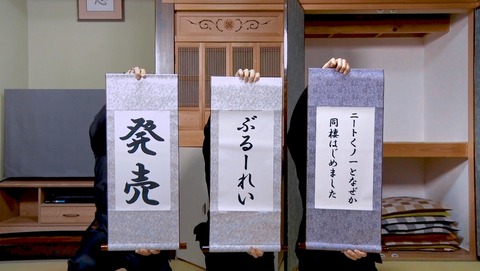 ニートくノ一となぜか
同棲はじめました
ぶるーれい
発売